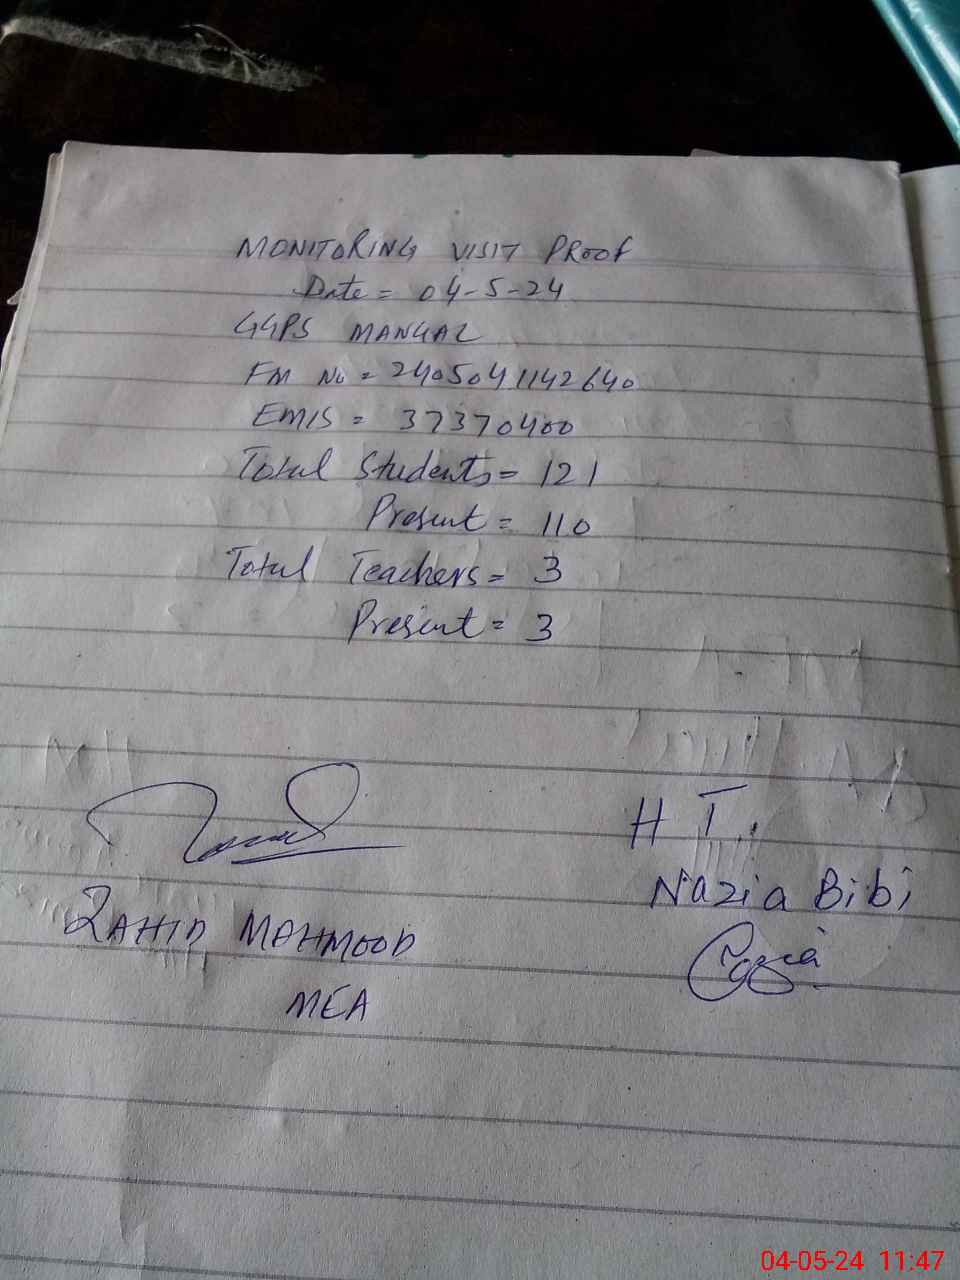 MONITORING VISIT PROOF
Date = 04-5-24
GGPS MANGAL
FM No = 2405041142640
EMIS = 37370400
Total Students = 121
Present = 110
Total Teachers = 3
Present = 3
H T.
Nazia Bibi
ZAHID MAHMOOD
MEA
04-05-24 11:47